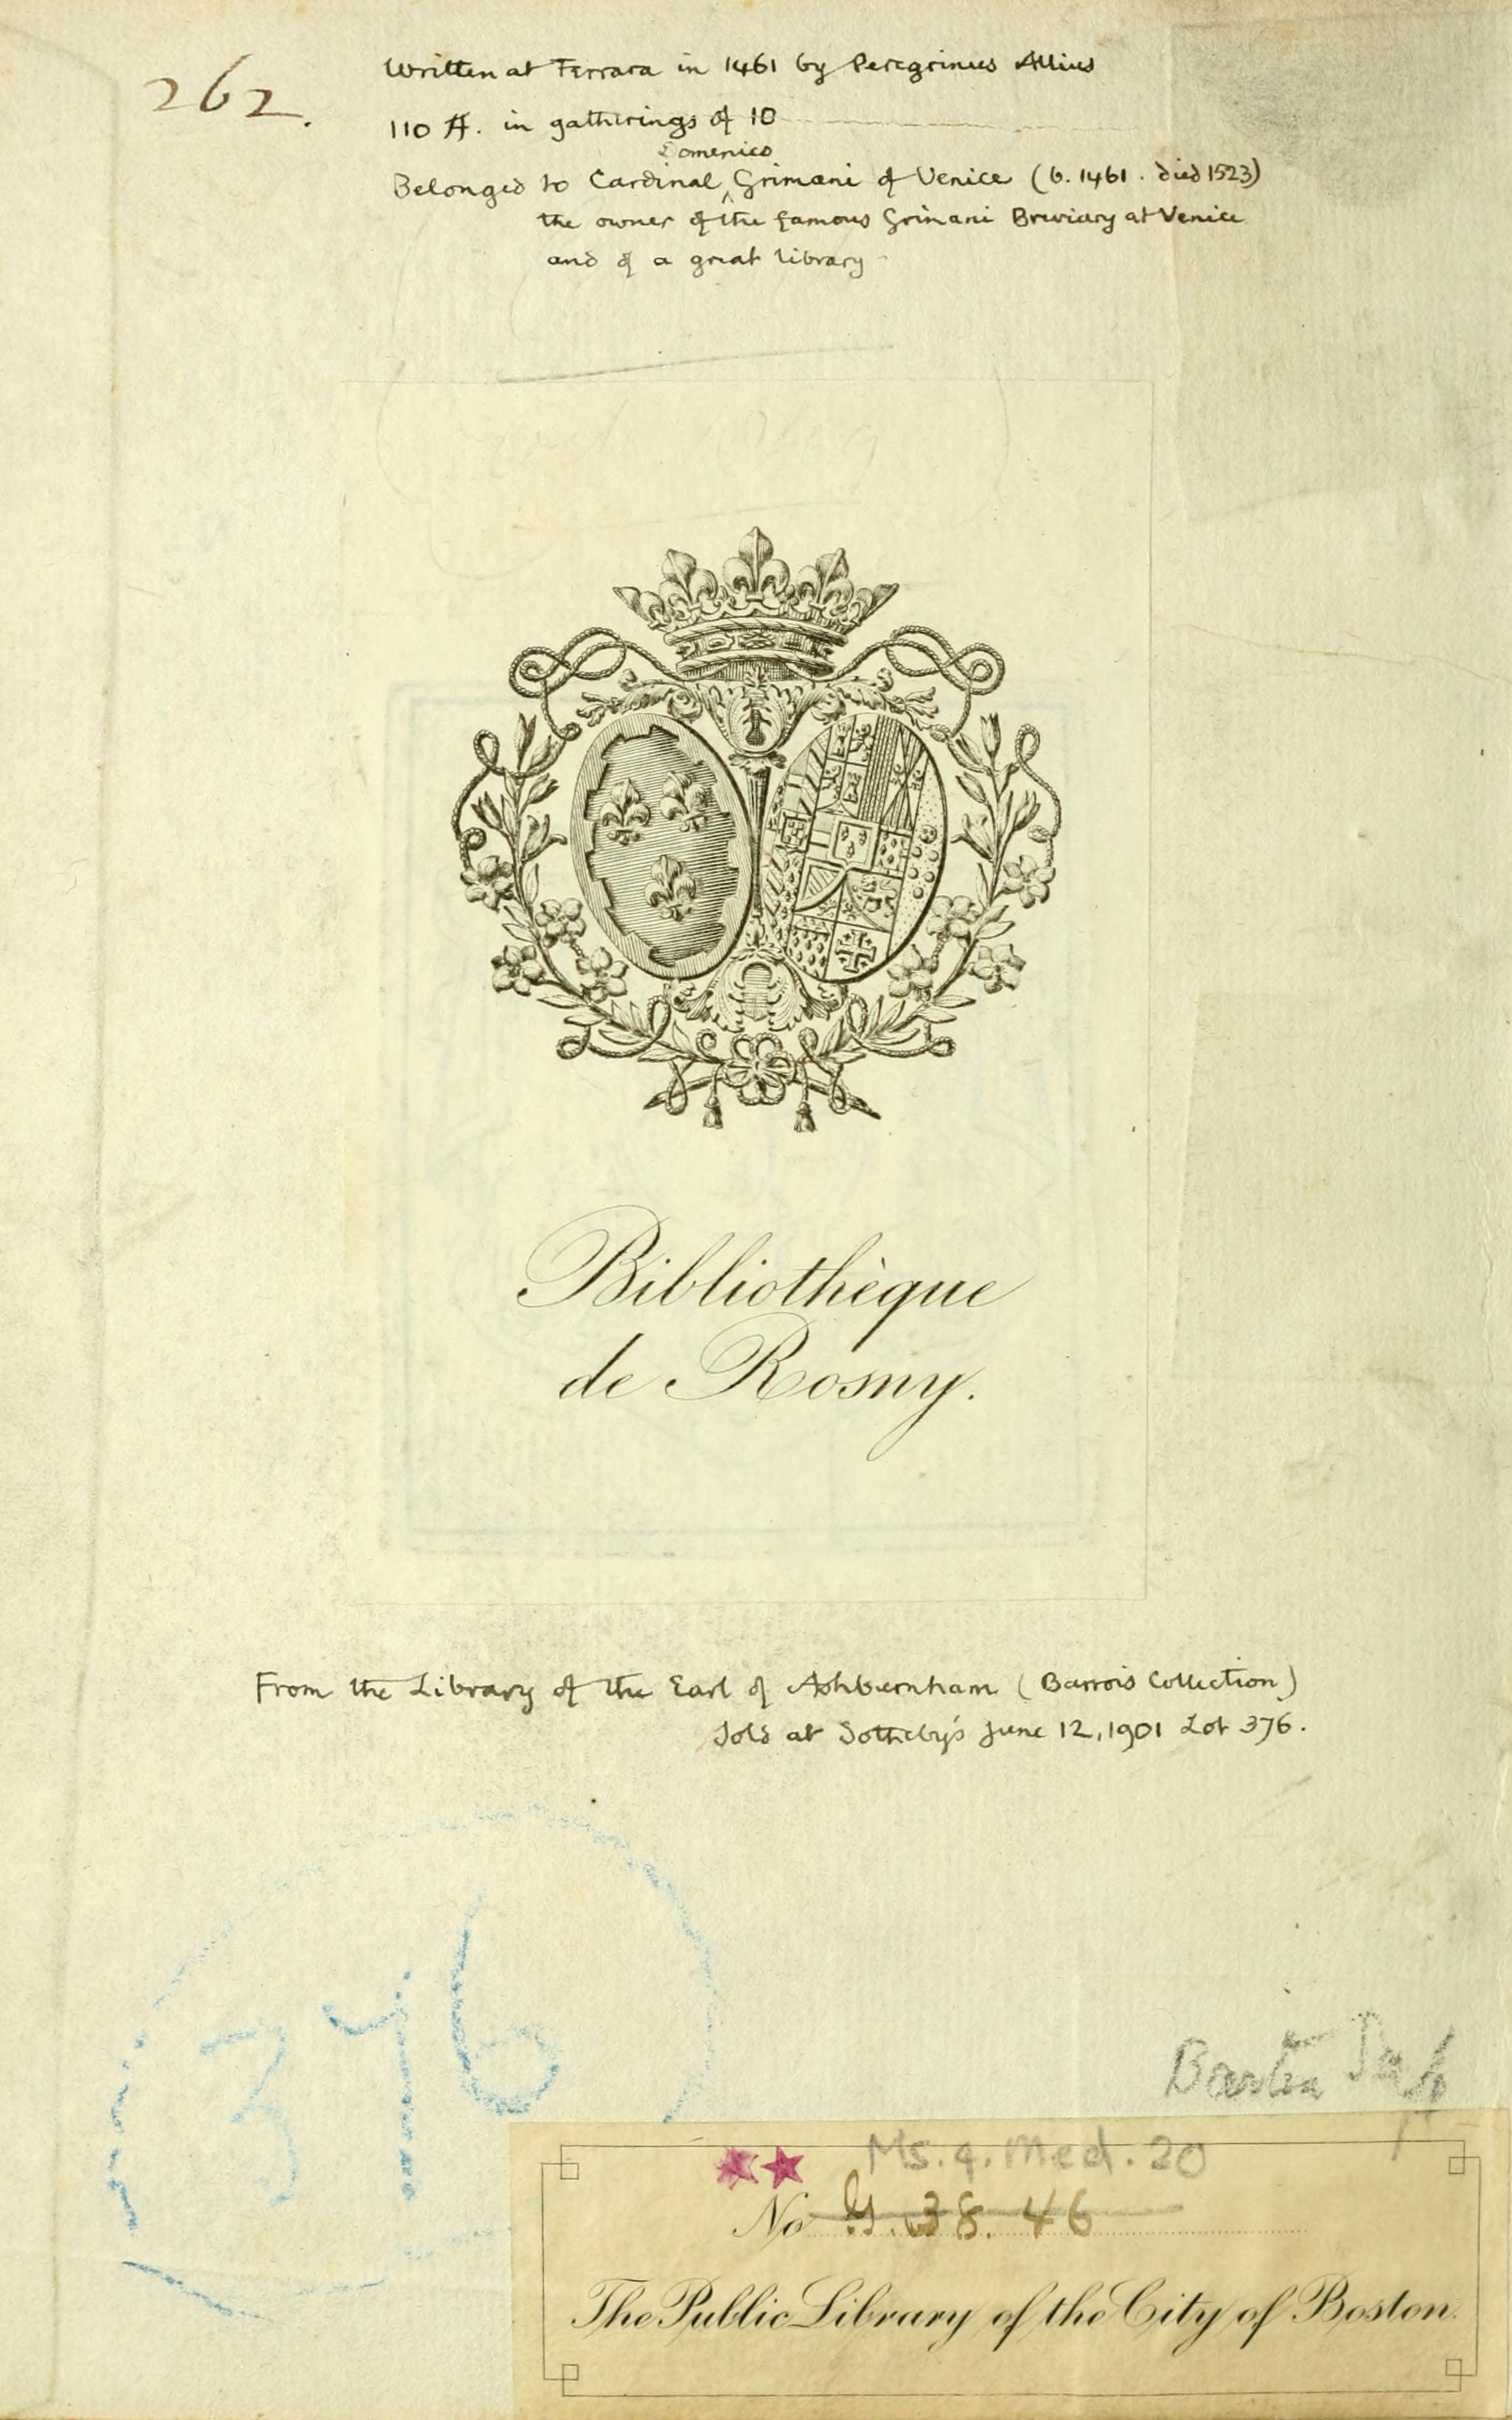 262.
Written at Ferrara in 1461 by Peregrinus Allius
110 ff. in gatherings of 10
Domenico
Belonged to Cardinal ^ Grimani of Venice (b. 1461. died 1523)
the owner of the famous Grimani Breviary at Venice
and of a great library
Bibliothèque
de Rosny.
From the Library of the Earl of Ashburnham (Barrois Collection)
Sold at Sotheby's June 12, 1901 Lot 376.
376
Ms. q. Med. 20
No G. 38. 46
The Public Library of the City of Boston.